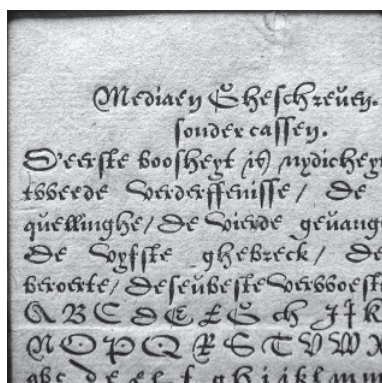 Mediaen Gheschreuen.
sonder cassen.
D'eerste boosheyt is nydicheyt
tweede Verderffenisse / De
quellinghe / De Vierde geuang
De Vyfste ghebreck / De
beroerte / De seuveste Verwoest
A B C D E F G h I J K
N O P Q R S T V W X
a b c d e f g h i j k l m